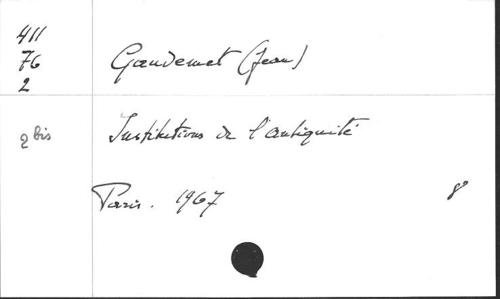 411
76
2
Gaudemet (Jean)
2 bis
Institutions de l'antiquité
Paris. 1967
8°